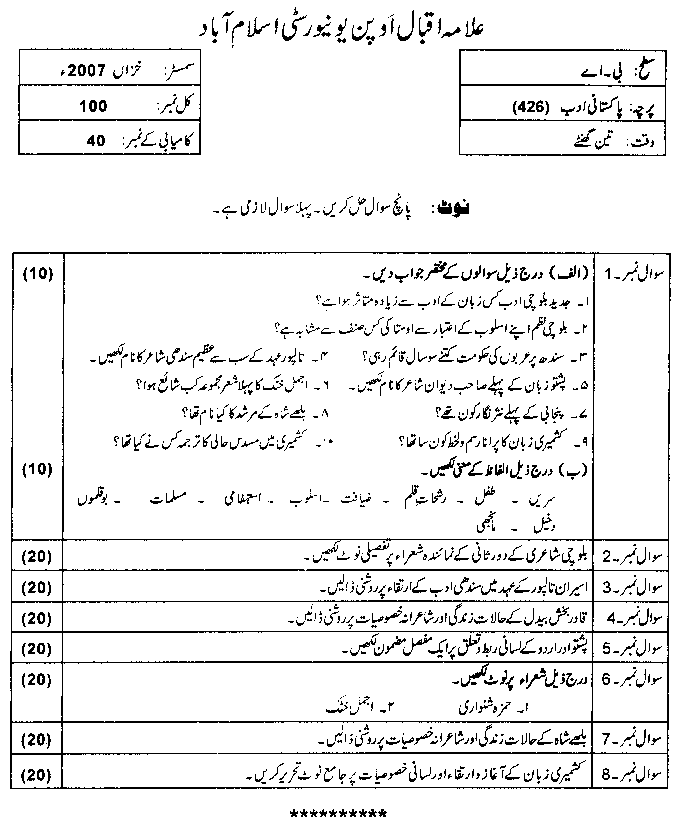 علامہ اقبال اوپن یونیورسٹی اسلام آباد
سطح: بی۔اے
پرچہ: پاکستانی ادب (426)
وقت: تین گھنٹے
سمسٹر: خزاں 2007ء
کل نمبر: 100
کامیابی کے نمبر: 40
نوٹ: پانچ سوال حل کریں۔ پہلا سوال لازمی ہے۔
سوال نمبر۔1 (الف) درج ذیل سوالوں کے مختصر جواب دیں۔ (10)
۱۔ جدید بلوچی ادب کس زبان کے ادب سے زیادہ متاثر ہوا ہے؟
۲۔ بلوچی نظم اپنے اسلوب کے اعتبار سے اوستا کی کس صنف سے مشابہ ہے؟
۳۔ سندھ پر عربوں کی حکومت کتنے سو سال قائم رہی؟ ۴۔ تالپور عہد کے سب سے عظیم سندھی شاعر کا نام لکھیں۔
۵۔ پشتو زبان کے پہلے صاحب دیوان شاعر کا نام لکھیں۔ ۶۔ اجمل خٹک کا پہلا شعر مجموعہ کب شائع ہوا؟
۷۔ پنجابی کے پہلے نثر نگار کون تھے؟ ۸۔ بلھے شاہ کے مرشد کا کیا نام تھا؟
۹۔ کشمیری زبان کا پرانا رسم ولخط کون سا تھا؟ ۱۰۔ کشمیری میں مسدس حالی کا ترجمہ کس نے کیا تھا؟
(ب) درج ذیل الفاظ کے معنی لکھیں۔ (10)
سریں ۔ طفل ۔ رشحات قلم ۔ ضیافت ۔ اسلوب ۔ استفہامی ۔ مسلمات ۔ بوقلموں
دخیل ۔ مانجھی
سوال نمبر۔2 بلوچی شاعری کے دور ثانی کے نمائندہ شعراء پر تفصیلی نوٹ لکھیں۔ (20)
سوال نمبر۔3 اسیران تالپور کے عہد میں سندھی ادب کے ارتقاء پر روشنی ڈالیں۔ (20)
سوال نمبر۔4 قادر بخش بیدل کے حالات زندگی اور شاعرانہ خصوصیات پر روشنی ڈالیں۔ (20)
سوال نمبر۔5 پشتو اور اردو کے لسانی ربط و تعلق پر ایک مفصل مضمون لکھیں۔ (20)
سوال نمبر۔6 درج ذیل شعراء پر نوٹ لکھیں۔ (20)
۱۔ حمزہ شنواری ۲۔ اجمل خٹک
سوال نمبر۔7 بلھے شاہ کے حالات زندگی اور شاعرانہ خصوصیات پر روشنی ڈالیں۔ (20)
سوال نمبر۔8 کشمیری زبان کے آغاز و ارتقاء اور لسانی خصوصیات پر جامع نوٹ تحریر کریں۔ (20)
**********